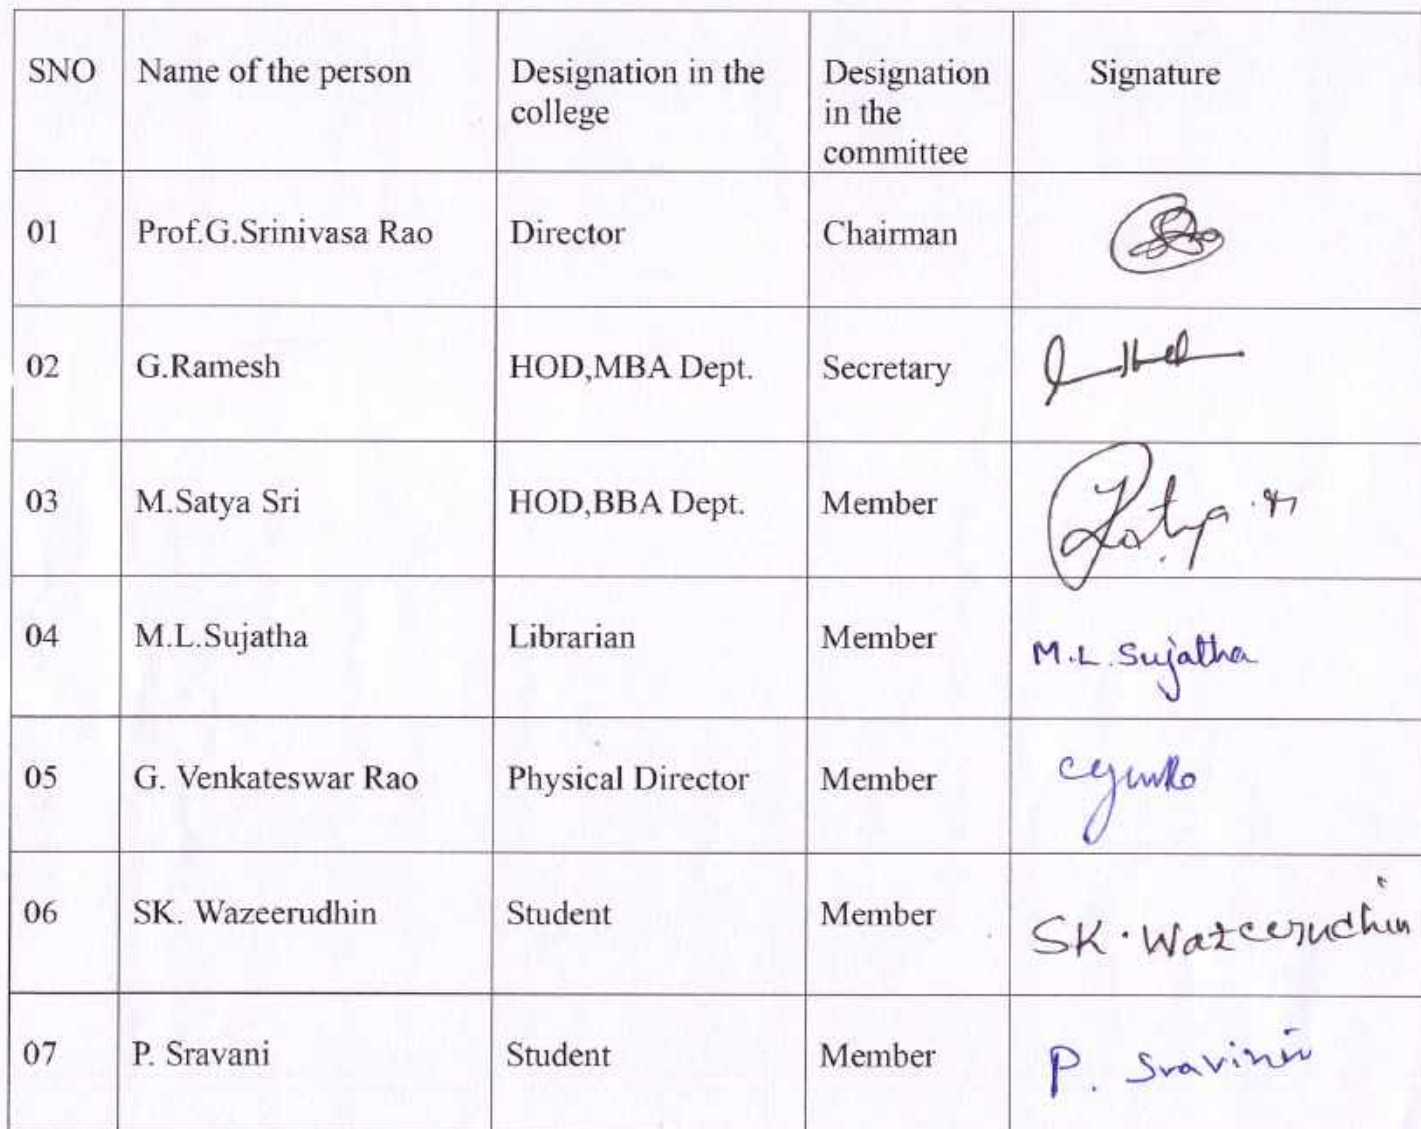 SNO Name of the person Designation in the Designation Signature
college in the
committee
01 Prof.G.Srinivasa Rao Director Chairman
02 G.Ramesh HOD,MBA Dept. Secretary
03 M.Satya Sri HOD,BBA Dept. Member
04 M.L.Sujatha Librarian Member M.L.Sujatha
05 G. Venkateswar Rao Physical Director Member
06 SK. Wazeerudhin Student Member SK. Wazeerudhin
07 P. Sravani Student Member P. Sravini